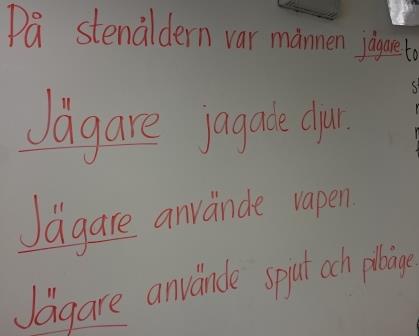 På stenåldern var männen jägare.
Jägare jagade djur.
Jägare använde vapen.
Jägare använde spjut och pilbåge.